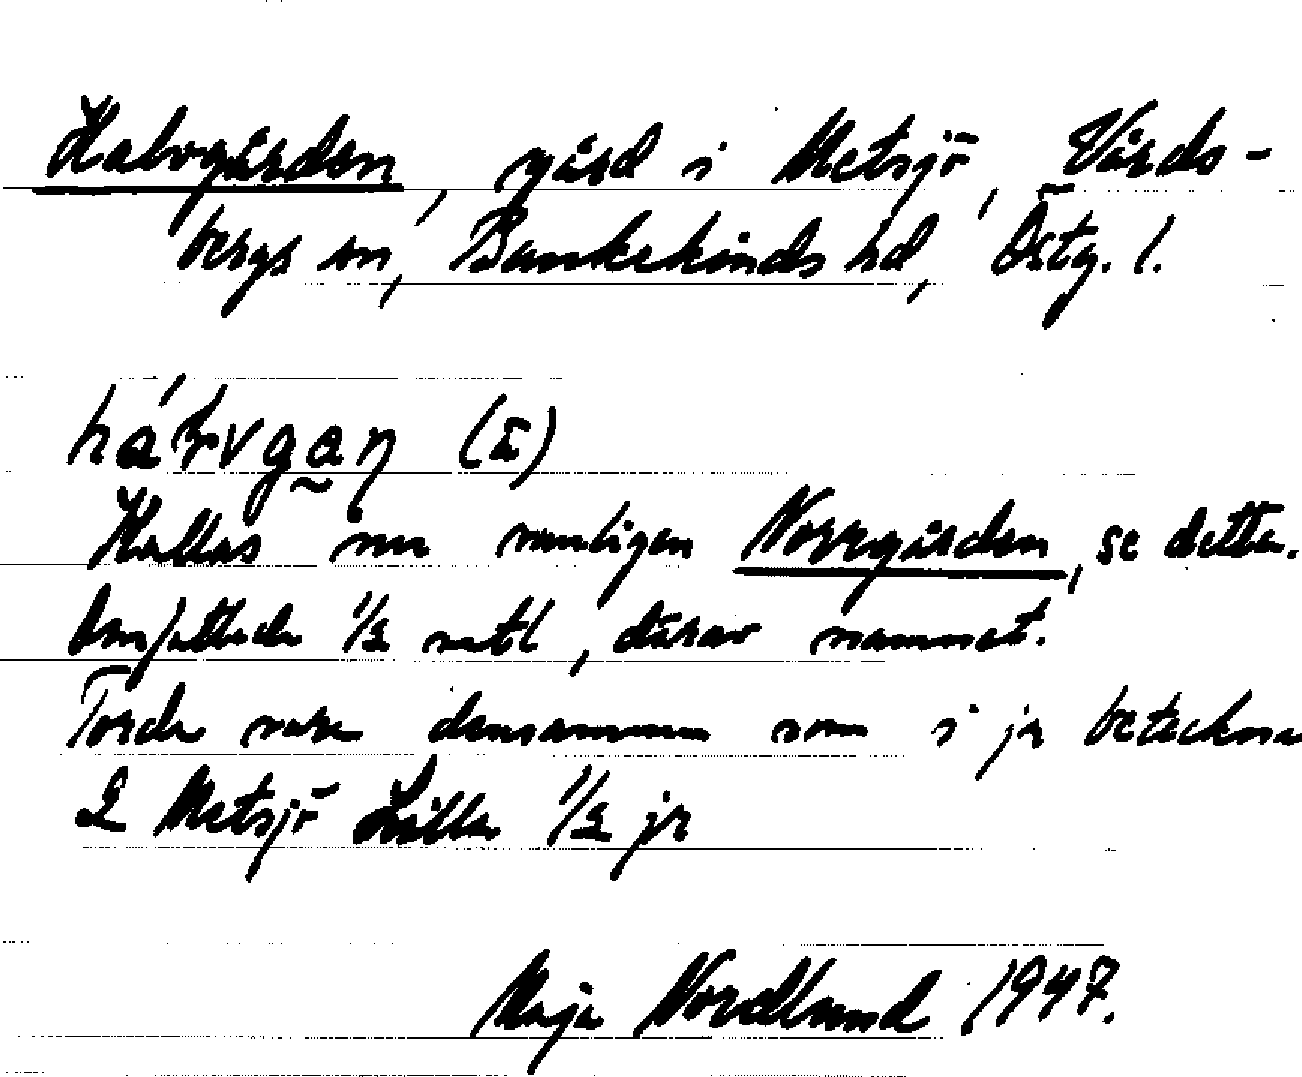 Halvgården, gård i Metsjö, Vårds-
bergs sn, Bankekinds hd, Östg. l.
(2)
Kallas nu vanligen Norrgården, se detta.
Omfattade 1/2 mtl, därav namnet.
Torde vara densamma som i jr betecknas
2 Metsjö Lilla 1/2 jr
Maja Nordlund 1947.